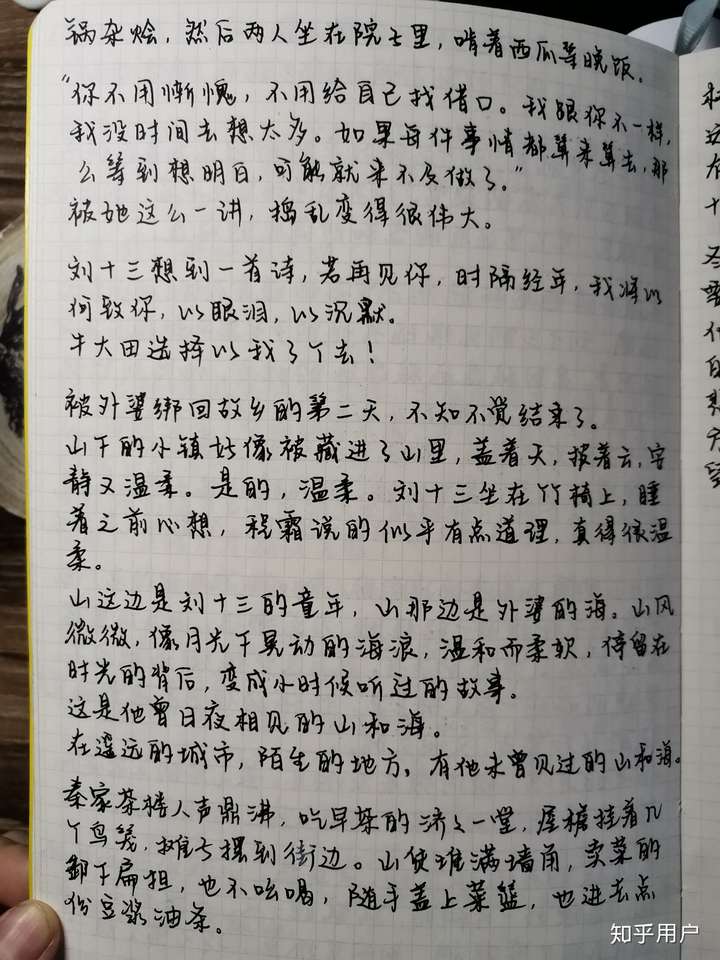 锅杂烩，然后两人坐在院子里，啃着西瓜等晚饭。
“你不用惭愧，不用给自己找借口。我跟你不一样，
我没时间去想太多。如果每件事情都算来算去，那
么等到想明白，可能就来不及做了。”
被她这么一讲，捣乱变得很伟大。
刘十三想到一首诗，若再见你，时隔经年，我将以
何致你，以眼泪，以沉默。
牛大田选择以我了丫去！
被外婆绑回故乡的第二天，不知不觉结束了。
山下的小镇好像被藏进了山里，盖着天，披着云，安
静又温柔。是的，温柔。刘十三坐在竹椅上，睡
着之前心想，程霜说的似乎有点道理，真得很温
柔。
山这边是刘十三的童年，山那边是外婆的海。山风
微微，像月光下晃动的海浪，温和而柔软，停留在
时光的背后，变成小时候听过的故事。
这是他曾日夜相见的山和海。
在遥远的城市，陌生的地方，有他未曾见过的山和海。
秦家茶楼人声鼎沸，吃早茶的济济一堂，屋檐挂着几
个鸟笼，摊子摆到街边。山货堆满墙角，卖菜的
卸下扁担，也不吆喝，随手盖上菜篮，也进去点
份豆浆油条。
知乎用户